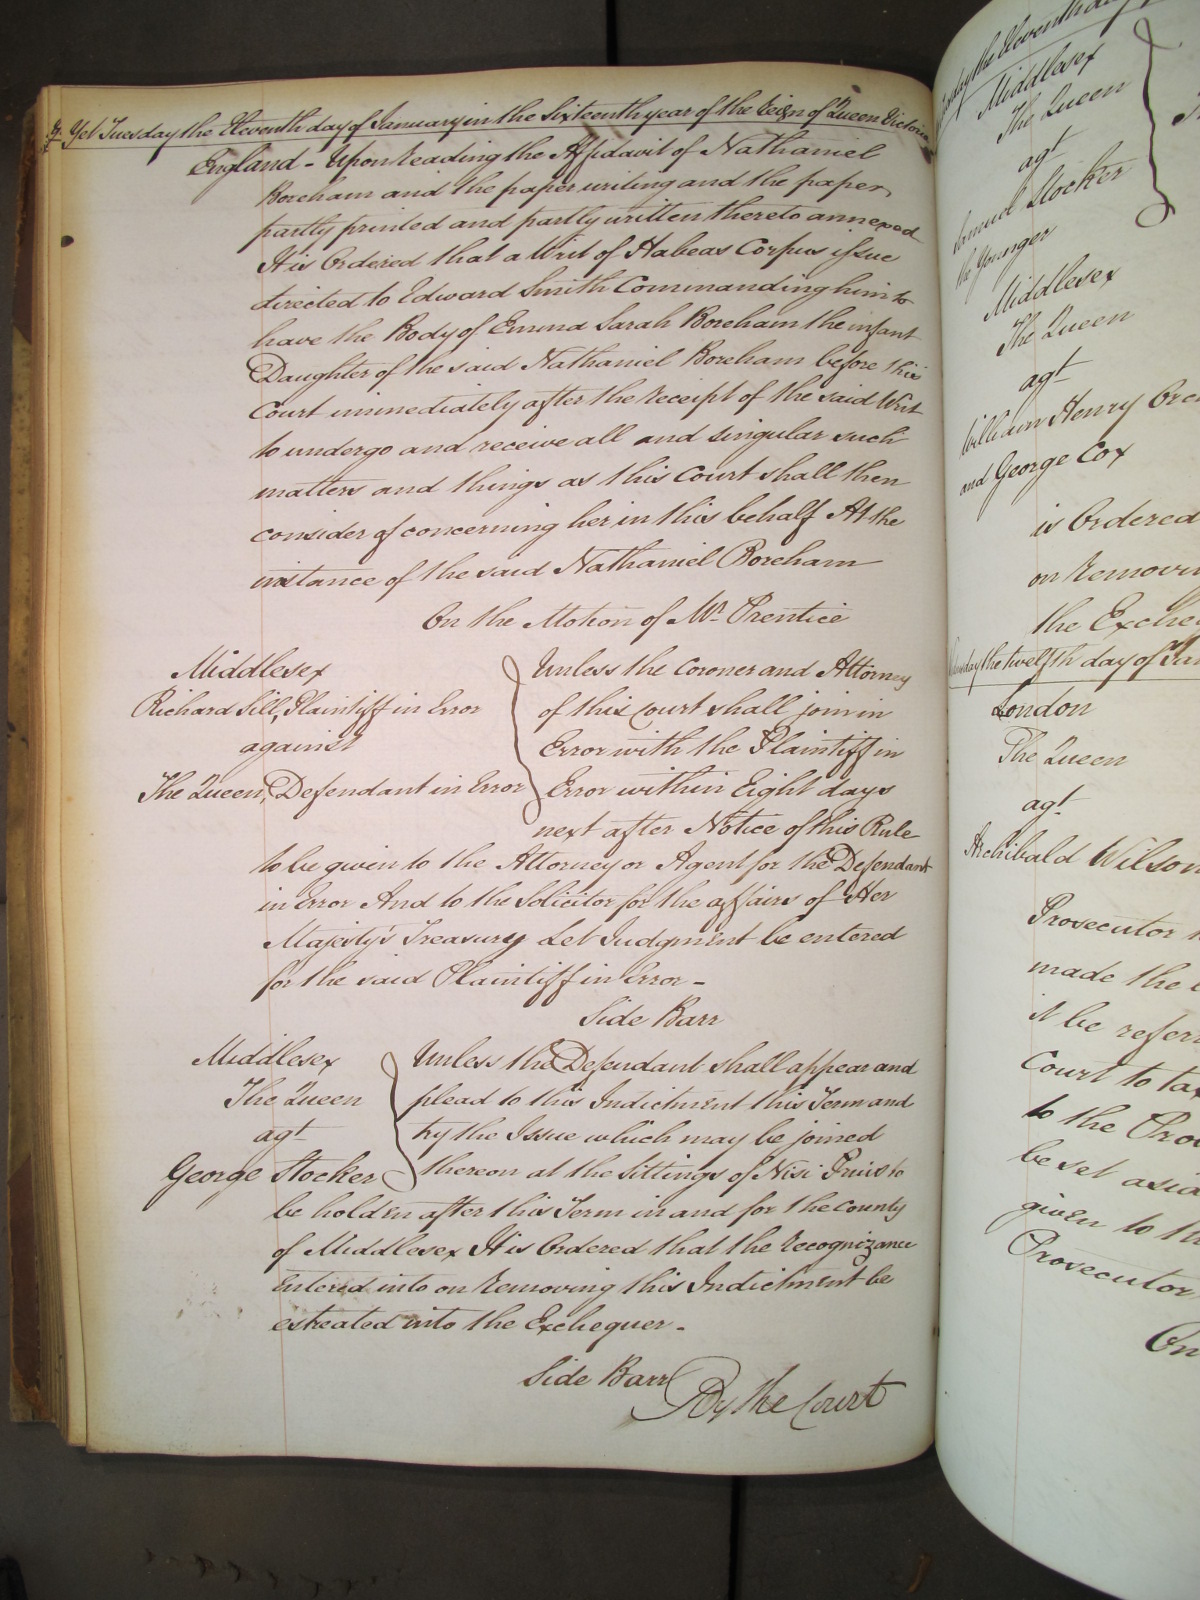 Yet Tuesday the Eleventh day of January in the Sixteenth year of the Reign of Queen Victoria
England - Upon reading the Affidavit of Nathaniel
Boreham and the paper writing and the paper
partly printed and partly written thereto annexed
It is Ordered that a Writ of Habeas Corpus issue
directed to Edward Smith Commanding him to
have the Body of Emma Sarah Boreham the infant
Daughter of the said Nathaniel Boreham before this
Court immediately after the receipt of the said Writ
to undergo and receive all and singular such
matters and things as this Court shall then
consider of concerning her in this behalf At the
instance of the said Nathaniel Boreham
On the Motion of Mr. Prentice
Middlesex
Richard Sill, Plaintiff in Error
against
The Queen, Defendant in Error
Unless the Coroner and Attorney
of this Court shall join in
Error with the Plaintiff in
Error within Eight days
next after Notice of this Rule
to be given to the Attorney or Agent for the Defendant
in Error And to the Solicitor for the affairs of Her
Majesty's Treasury Let Judgment be entered
for the said Plaintiff in Error -
Side Barr
Middlesex
The Queen
agt
George Stocker
Unless the Defendant shall appear and
plead to this Indictment this Term and
try the Issue which may be joined
thereon at the Sittings of Nisi Prius to
be holden after this Term in and for the County
of Middlesex It is Ordered that the recognizance
entered into on removing this Indictment be
estreated into the Exchequer -
Side Barr
By the Court
day the Eleventh day
Middlesex
The Queen
agt
Samuel Stocker
the Younger
Middlesex
The Queen
agt
William Henry
and George Cox
is Ordered
on removin
the Exche
the twelfth day of Jan
London
The Queen
agt
Archibald Wilson
Prosecutor
made the
it be referr
Court to tax
to the Pro
be set asid
given to th
Prosecutor
On